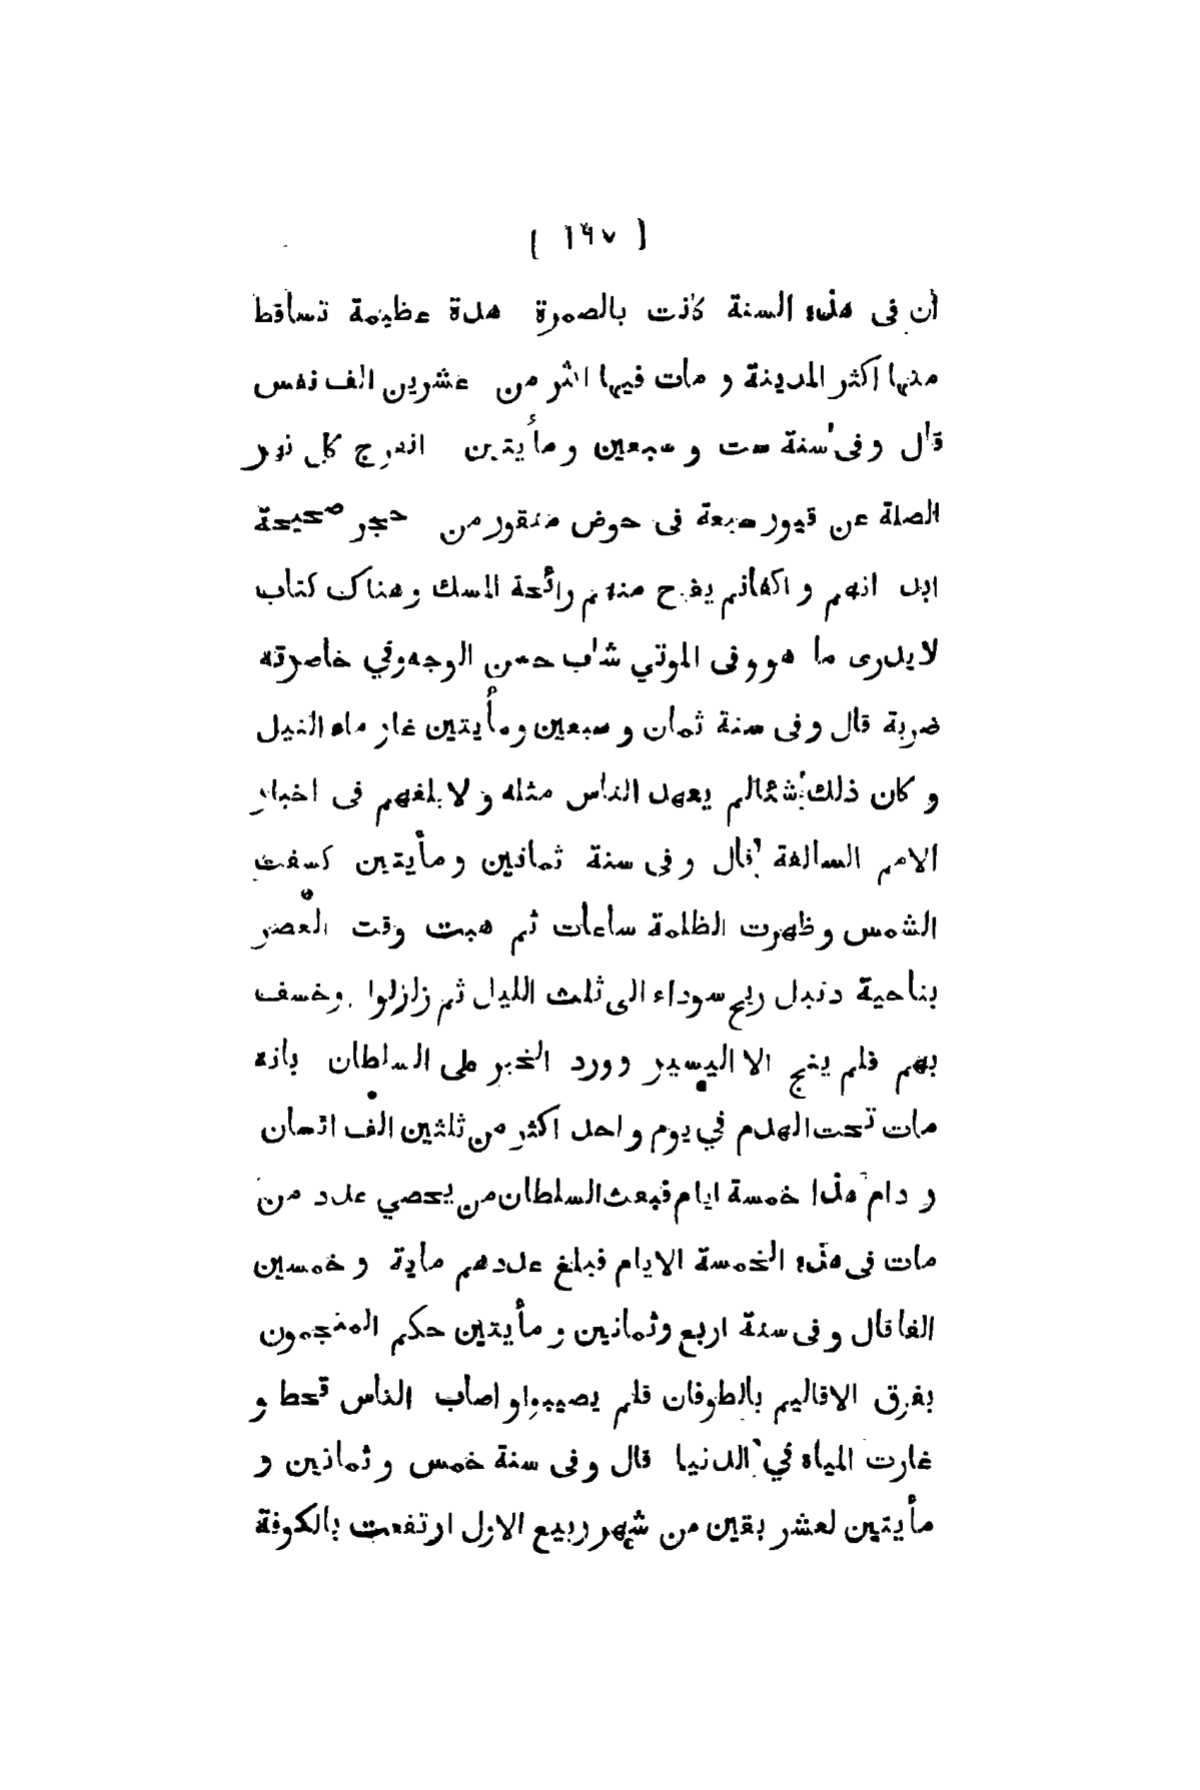 ( ١٩٧ )
أن فى هذه السنة كانت بالصمرة هدة عظيمة تساقط
منها اكثر المدينة و مات فيها اكثر من عشرين الف نفس
قال وفى سنة ست و سبعين و مأيتين انفرج كل نهر
الصلة عن قبور سبعة فى حوض منقور من حجر صحيحة
ابدانهم و اكفانهم يفوح منهم رائحة المسك و هناك كتاب
لا يدرى ما هو و فى الموتي شاب حسن الوجه و في خاصرته
ضربة قال و فى سنة ثمان و سبعين و مأيتين غار ماء النيل
و كان ذلك شئالم يعهد الناس مثله و لا بلغهم فى اخبار
الامم السالفة قال و فى سنة ثمانين و مأيتين كسفت
الشمس و ظهرت الظلمة ساعات ثم هبت وقت العصر
بناحية دنبل ريح سوداء الى ثلث الليل ثم زلزلوا و خسف
بهم فلم ينج الا اليسير و ورد الخبر على السلطان بانه
مات تحت الهدم في يوم و احد اكثر من ثلثين الف انسان
و دام هذا خمسة ايام فبعث السلطان من يحصي عدد من
مات فى هذه الخمسة الايام فبلغ عددهم ماية و خمسين
الفا قال و فى سنة اربع و ثمانين و مأيتين حكم المنجمون
بغرق الاقاليم بالطوفان فلم يصيبوا و اصاب الناس قحط و
غارت المياه في الدنيا قال و فى سنة خمس و ثمانين و
مأيتين لعشر بقين من شهر ربيع الاول ارتفعت بالكوفة